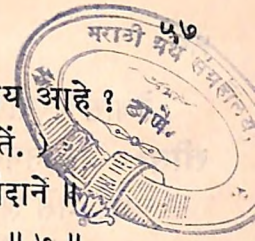 ५७
मराठी ग्रंथ संग्रहालय,
ठाणे.
य आहे ?
तें. )
दानें ॥
॥ ७ ॥